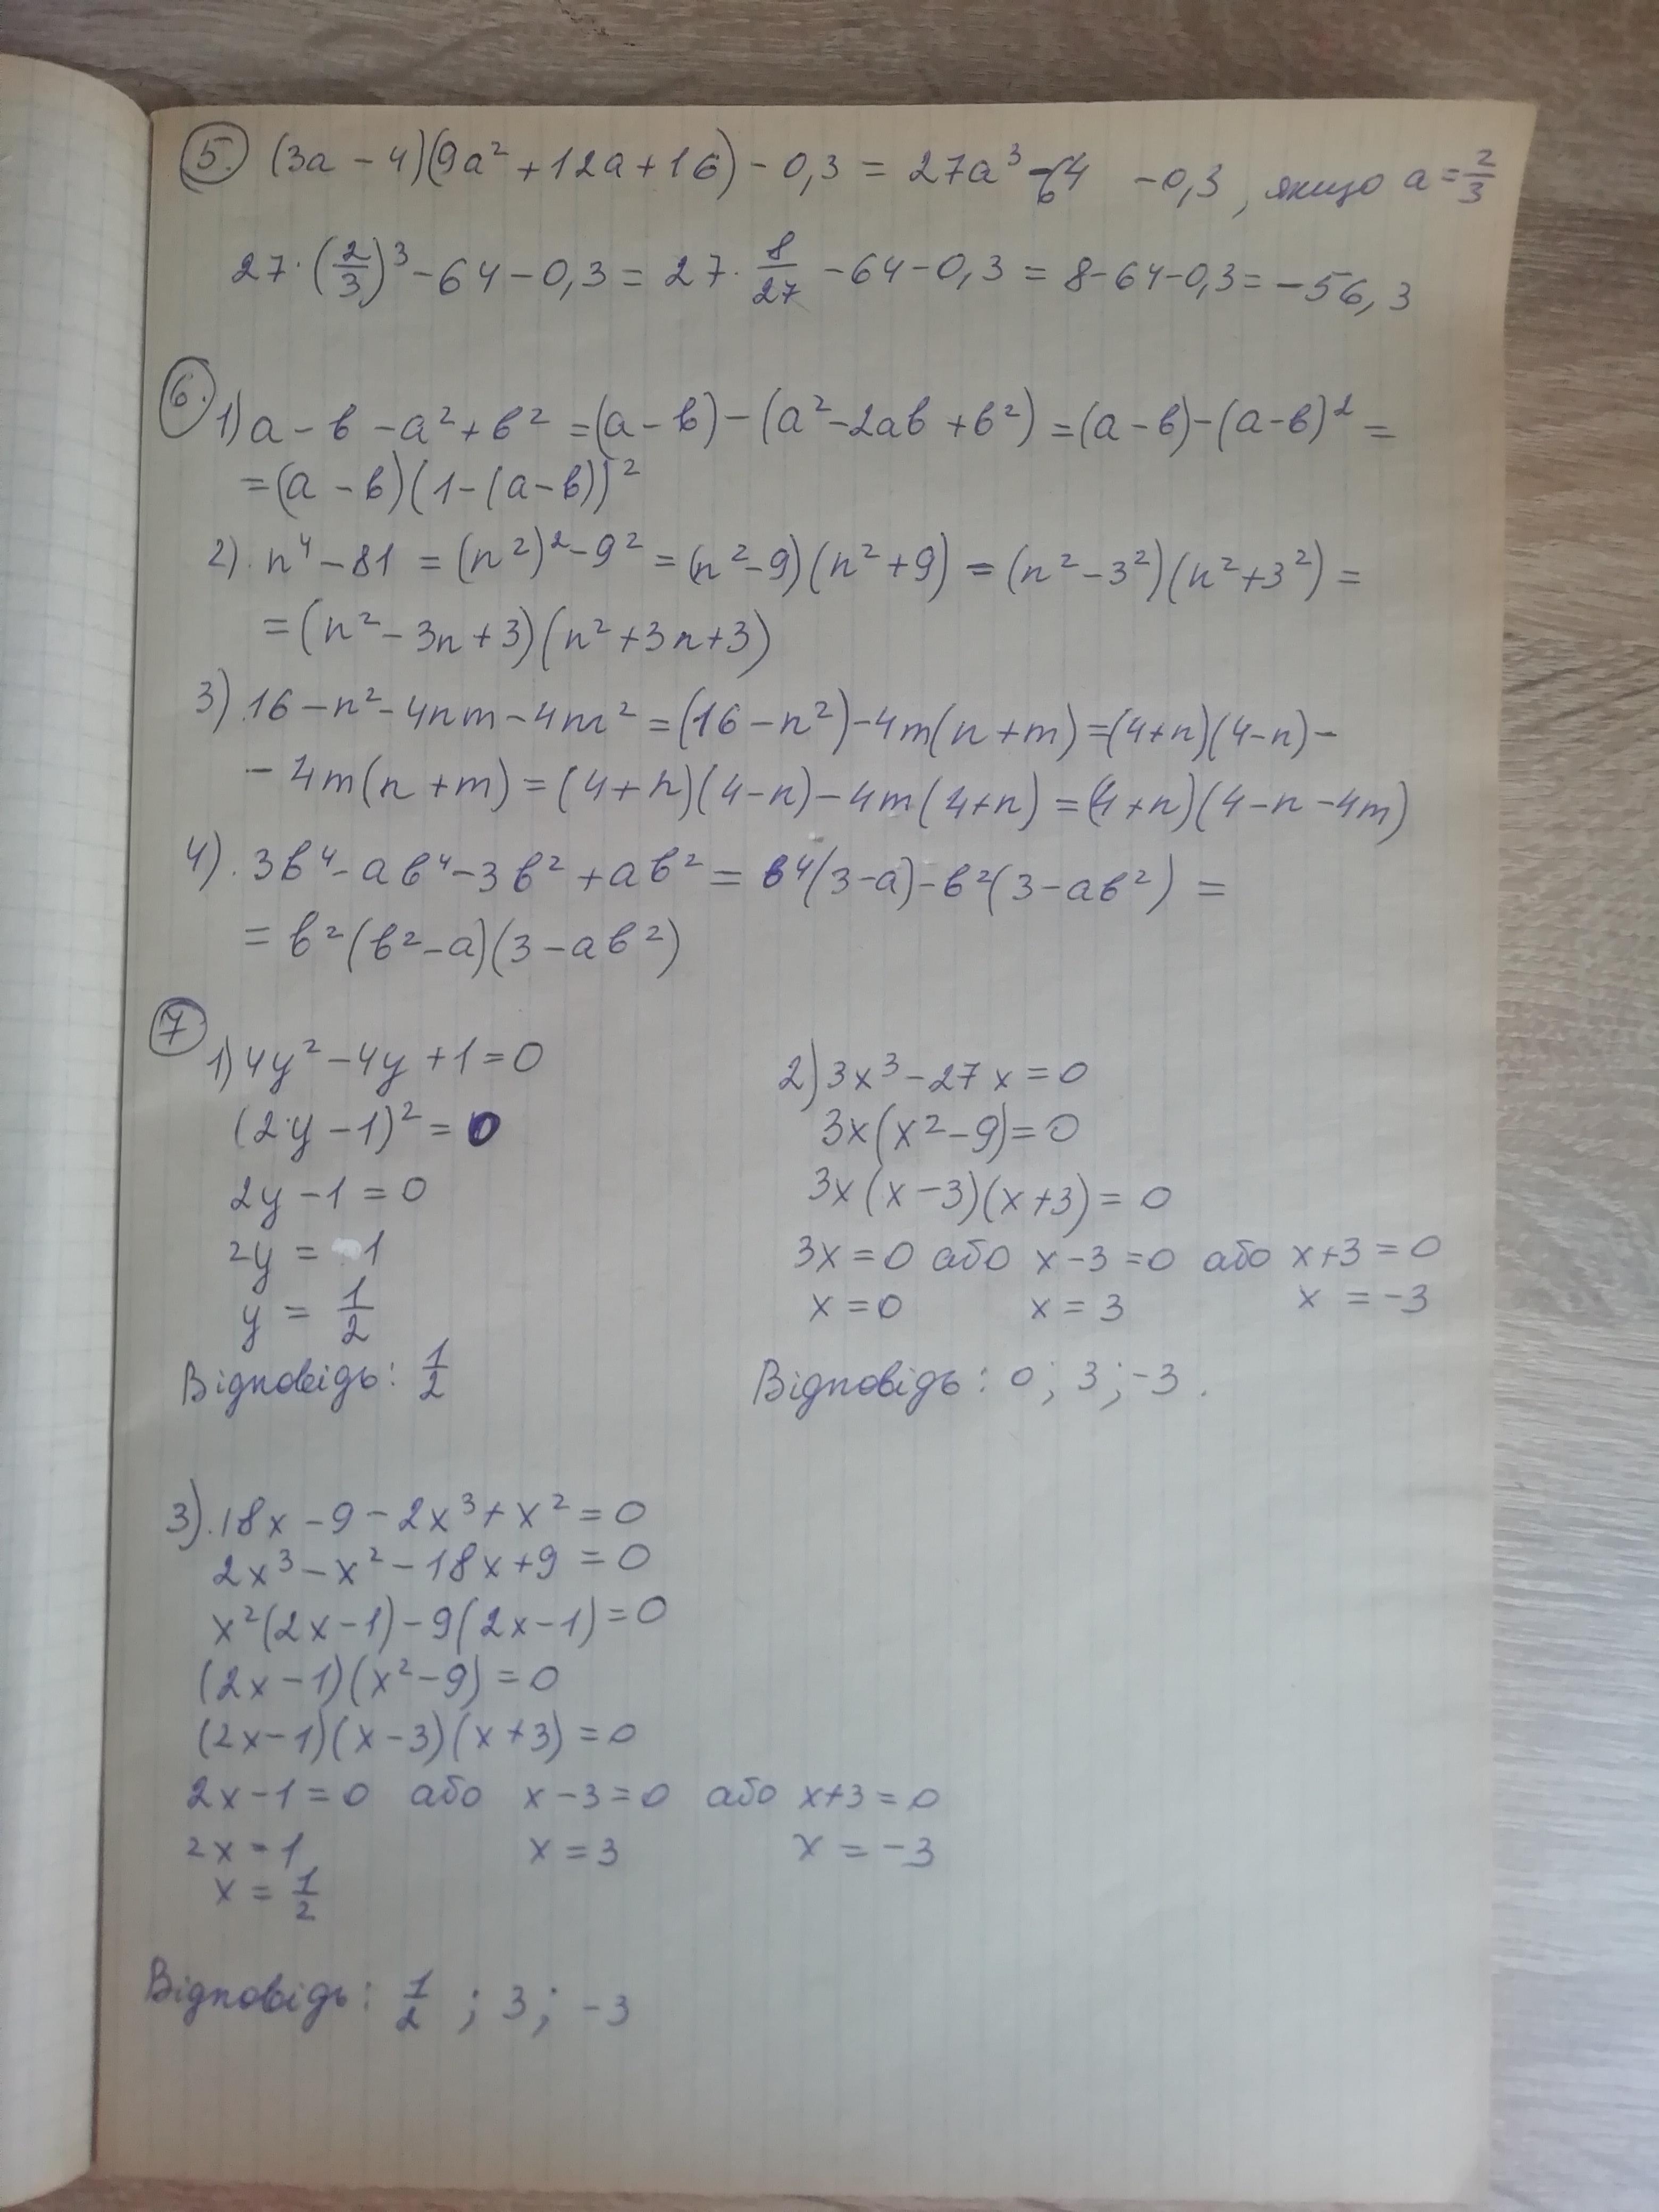 5. (3a - 4)(9a² + 12a + 16) - 0,3 = 27a³ - 64 - 0,3, якщо a = 2/3
27·(2/3)³ - 64 - 0,3 = 27·8/27 - 64 - 0,3 = 8 - 64 - 0,3 = -56,3
6. 1) a - b - a² + b² = (a - b) - (a² - 2ab + b²) = (a - b) - (a - b)² =
= (a - b)(1 - (a - b))²
2). n⁴ - 81 = (n²)² - 9² = (n² - 9)(n² + 9) = (n² - 3²)(n² + 3²) =
= (n² - 3n + 3)(n² + 3n + 3)
3) 16 - n² - 4nm - 4m² = (16 - n²) - 4m(n + m) = (4 + n)(4 - n) -
- 4m(n + m) = (4 + n)(4 - n) - 4m(4 + n) = (4 + n)(4 - n - 4m)
4). 3b⁴ - ab⁴ - 3b² + ab² = b⁴(3 - a) - b²(3 - ab²) =
= b²(b² - a)(3 - ab²)
7
1) 4y² - 4y + 1 = 0
(2y - 1)² = 0
2y - 1 = 0
2y = 1
y = 1/2
Відповідь: 1/2
2) 3x³ - 27x = 0
3x(x² - 9) = 0
3x(x - 3)(x + 3) = 0
3x = 0 або x - 3 = 0 або x + 3 = 0
x = 0 x = 3 x = -3
Відповідь: 0; 3; -3.
3). 18x - 9 - 2x³ + x² = 0
2x³ - x² - 18x + 9 = 0
x²(2x - 1) - 9(2x - 1) = 0
(2x - 1)(x² - 9) = 0
(2x - 1)(x - 3)(x + 3) = 0
2x - 1 = 0 або x - 3 = 0 або x + 3 = 0
2x = 1 x = 3 x = -3
x = 1/2
Відповідь: 1/2; 3; -3